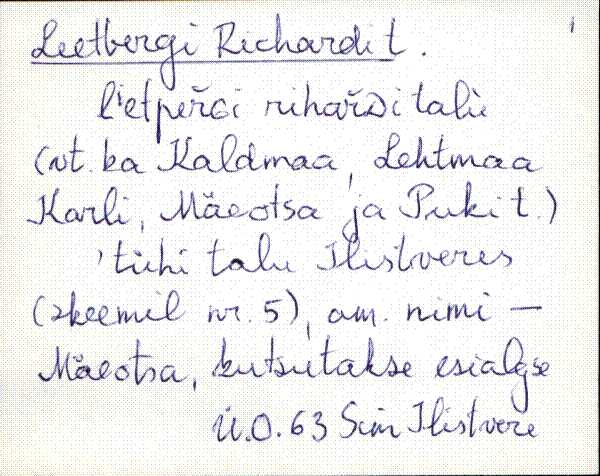 Leetbergi Richardi t.
l'etpeřgi rihařdi talu
(vt. ka Kaldmaa, Lehtmaa
Karli, Mäeotsa ja Puki t.)
'tühi talu Ilistveres
(skeemil nr. 5), am. nimi —
Mäeotsa, kutsutakse esialgse
Ü.O. 63 Sim Ilistvere